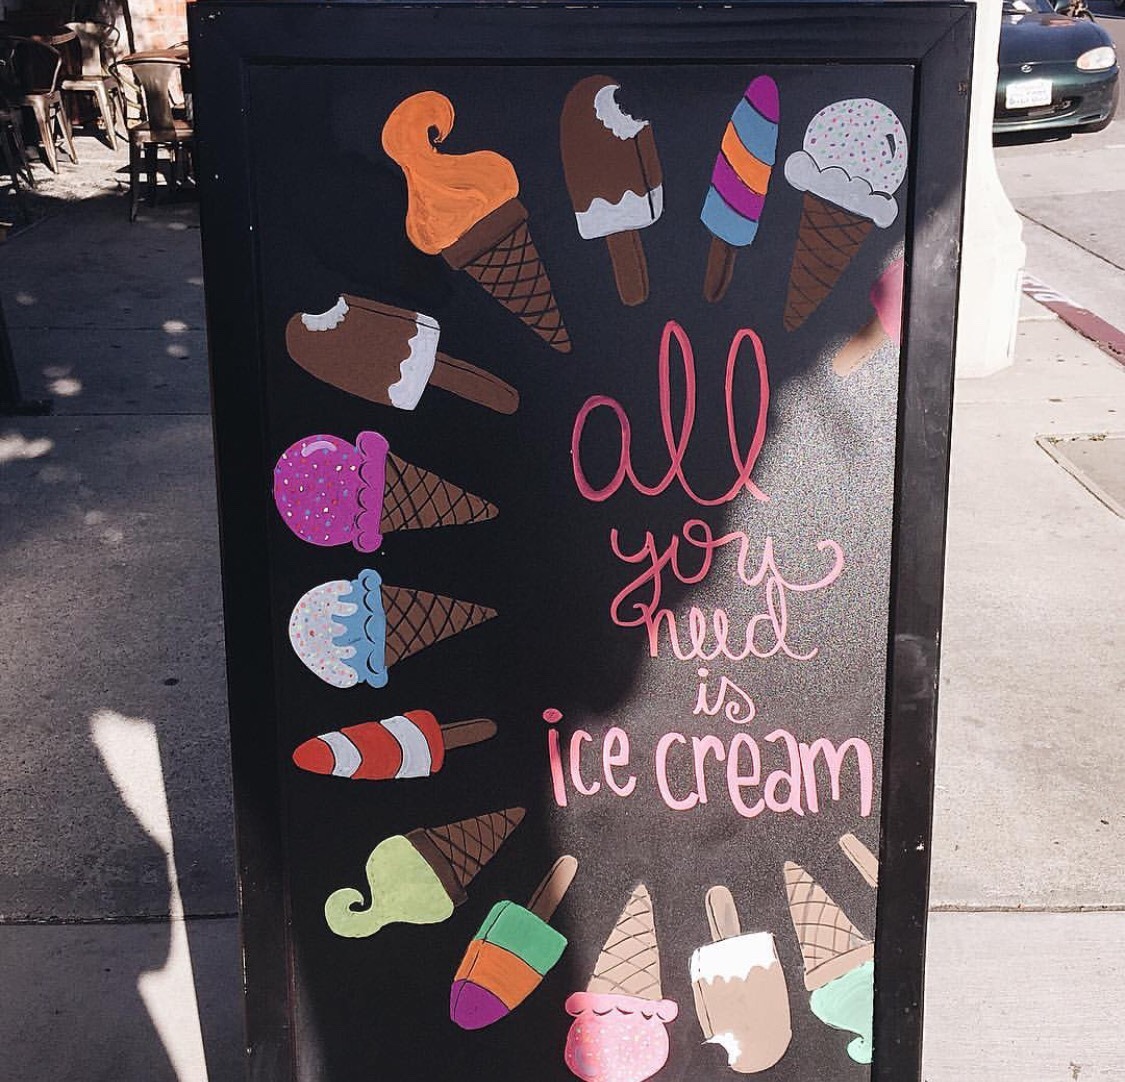 all
you
need
is
ice cream